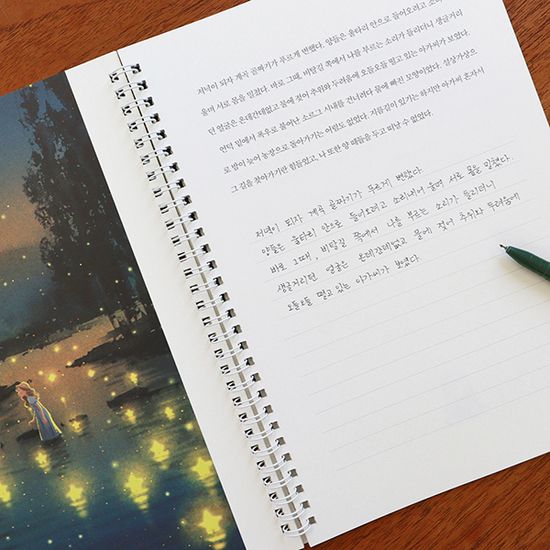 저녁이 되자 계곡 골짜기가 푸르게 변했다. 양들은 울타리 안으로 들어오려고 소리
울며 서로 몸을 밀쳤다. 바로 그때, 비탈길 쪽에서 나를 부르는 소리가 들리더니 생글거리
던 얼굴은 온데간데없고 물에 젖어 추위와 두려움에 오들오들 떨고 있는 아가씨가 보였다. 설상가상으
언덕 밑에서 폭우로 불어난 소르그 시내를 건너려다 물에 빠진 모양이었다.
로 밤이 늦어 농장으로 돌아가기는 어림도 없었다. 지름길이 있기는 하지만 아가씨 혼자서
그 길을 찾아가기란 힘들었고, 나 또한 양 떼들을 두고 떠날 수 없었다.
저녁이 되자 계곡 골짜기가 푸르게 변했다.
양들은 울타리 안으로 들어오려고 소리내어 울며 서로 몸을 밀쳤다.
바로 그때, 비탈길 쪽에서 나를 부르는 소리가 들리더니
생글거리던 얼굴은 온데간데없고 물에 젖어 추위와 두려움에
오들오들 떨고 있는 아가씨가 보였다.